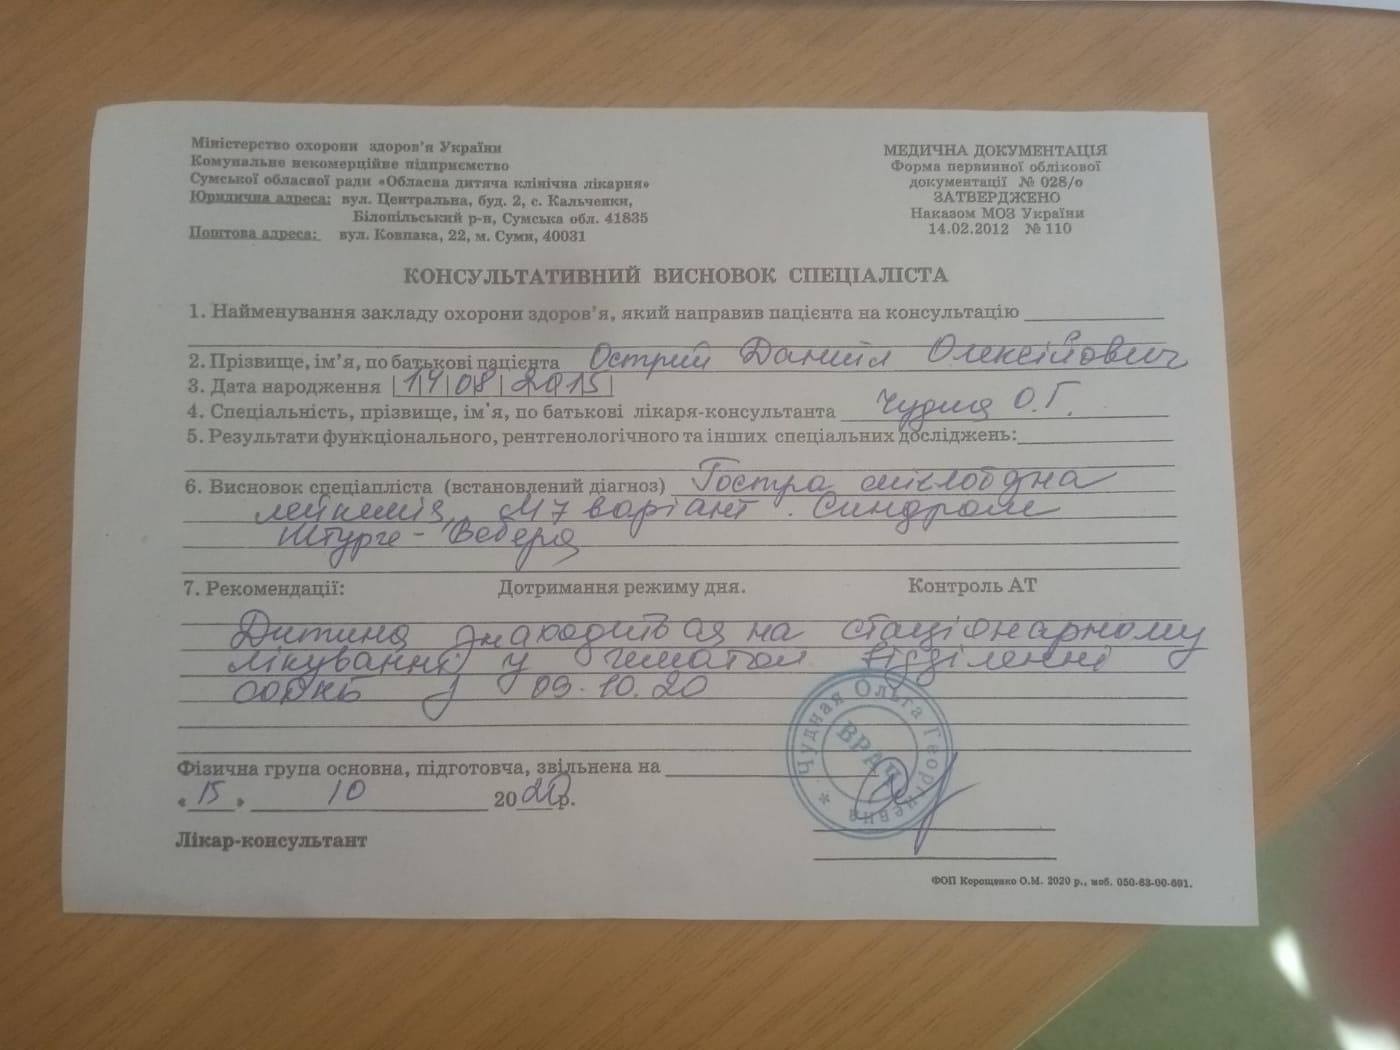 Міністерство охорони здоров'я України
Комунальне некомерційне підприємство
Сумської обласної ради «Обласна дитяча клінічна лікарня»
Юридична адреса: вул. Центральна, буд. 2, с. Кальченки,
Білопільський р-н, Сумська обл. 41835
Поштова адреса: вул. Ковпака, 22, м. Суми, 40031
МЕДИЧНА ДОКУМЕНТАЦІЯ
Форма первинної облікової
документації № 028/о
ЗАТВЕРДЖЕНО
Наказом МОЗ України
14.02.2012 № 110
КОНСУЛЬТАТИВНИЙ ВИСНОВОК СПЕЦІАЛІСТА
1. Найменування закладу охорони здоров'я, який направив пацієнта на консультацію
2. Прізвище, ім'я, по батькові пацієнта Острий Даниїл Олексійович
3. Дата народження 14 08 2015
4. Спеціальність, прізвище, ім'я, по батькові лікаря-консультанта Чудна О.Г.
5. Результати функціонального, рентгенологічного та інших спеціальних досліджень:
6. Висновок спеціапліста (встановлений діагноз) Гостра мієлоїдна
лейкемія, М7 варіант. Синдром
Штурге-Вебера
7. Рекомендації: Дотримання режиму дня. Контроль АТ
Дитина знаходиться на стаціонарному
лікуванні у гематол відділенні
СОДКЛ з 09.10.20
Чудная Ольга Георгиевна *
ВРАЧ
Фізична група основна, підготовча, звільнена на
«15» 10 2020 р.
Лікар-консультант
ФОП Корощенко О.М. 2020 р., моб. 050-63-00-691.